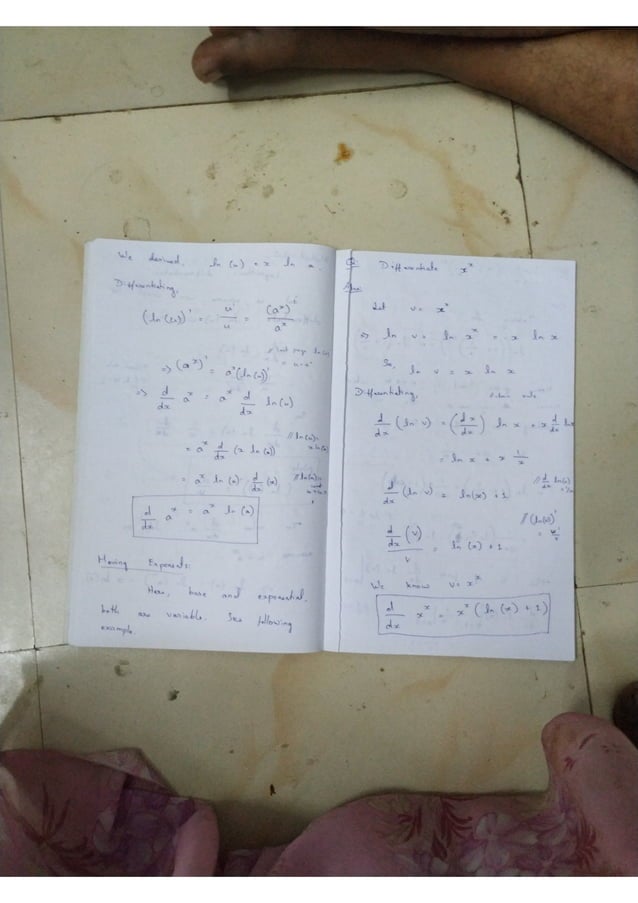 We derived, ln (u) = x ln a.
Differentiating,
(ln (u))' = u'/u = (a^x)'/a^x
=> (a^x)' = a^x (ln(u))'
=> d/dx a^x = a^x d/dx ln(u)
= a^x d/dx (x ln(a)) // ln(u) = x ln(a)
= a^x ln(a) d/dx (x)
d/dx a^x = a^x ln(a)
Moving Exponents:
Here, base and exponential,
both are variable. See following
example.
Q: Differentiate x^x
Ans:
Let v = x^x
=> ln v = ln x^x = x ln x
So,
ln v = x ln x
Differentiating, rule
d/dx (ln v) = (dx/dx) ln x + x d/dx ln x
= ln x + x 1/x
d/dx (ln v) = ln(x) + 1 // d/dx ln(x) = 1/x
d/dx (v)/v = ln(x) + 1 // (ln(v))' = v'/v
We know v = x^x
d/dx x^x = x^x (ln(x) + 1)